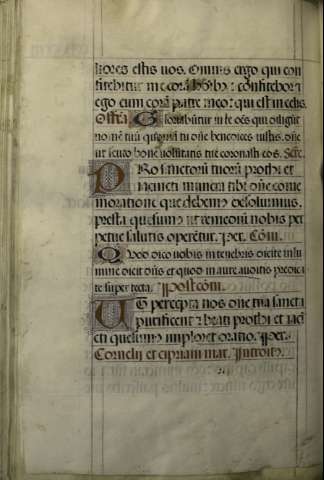 liores estis vos. Omnis ergo qui con
fitebitur me corā hōībꝰ: confitebor ⁊
ego eum corā patre meo: qui est in celis.
Offā. Gloriabūtur in te oēs qui diligūt
nomē tuū quoniā tu dñe benedices iustis. dñe
ut scuto bone volūtatis tue coronasti eos. Secre.
Pro sanctorū tuorū prothi et
iacincti munera tibi dñe come
moratione que debemꝰ exsoluimus.
presta quesumꝰ ut remediū nobis per
petue salutis operētur. Per. Cōm.
Quod dico vobis in tenebris dicite in lu
mine dicit dñs et quod in aure auditis predica
te super tecta. Postcōm.
Ut percepta nos dñe tua sancta
purificent ⁊ beati prothi et iaci
cti quesumꝰ imploret oratio. Per.
Cornelij et cipriani mar. Introitꝰ.